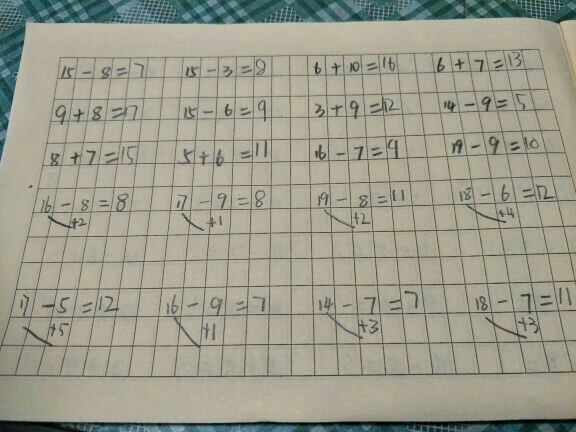 15-8=7 15-3=8 6+10=16 6+7=13
9+8=17 15-6=9 3+9=12 14-9=5
8+7=15 5+6=11 16-7=9 19-9=10
16-8=8 17-9=8 19-8=11 18-6=12
+2 +1 +2 +4
17-5=12 16-9=7 14-7=7 18-7=11
+5 +1 +3 +3